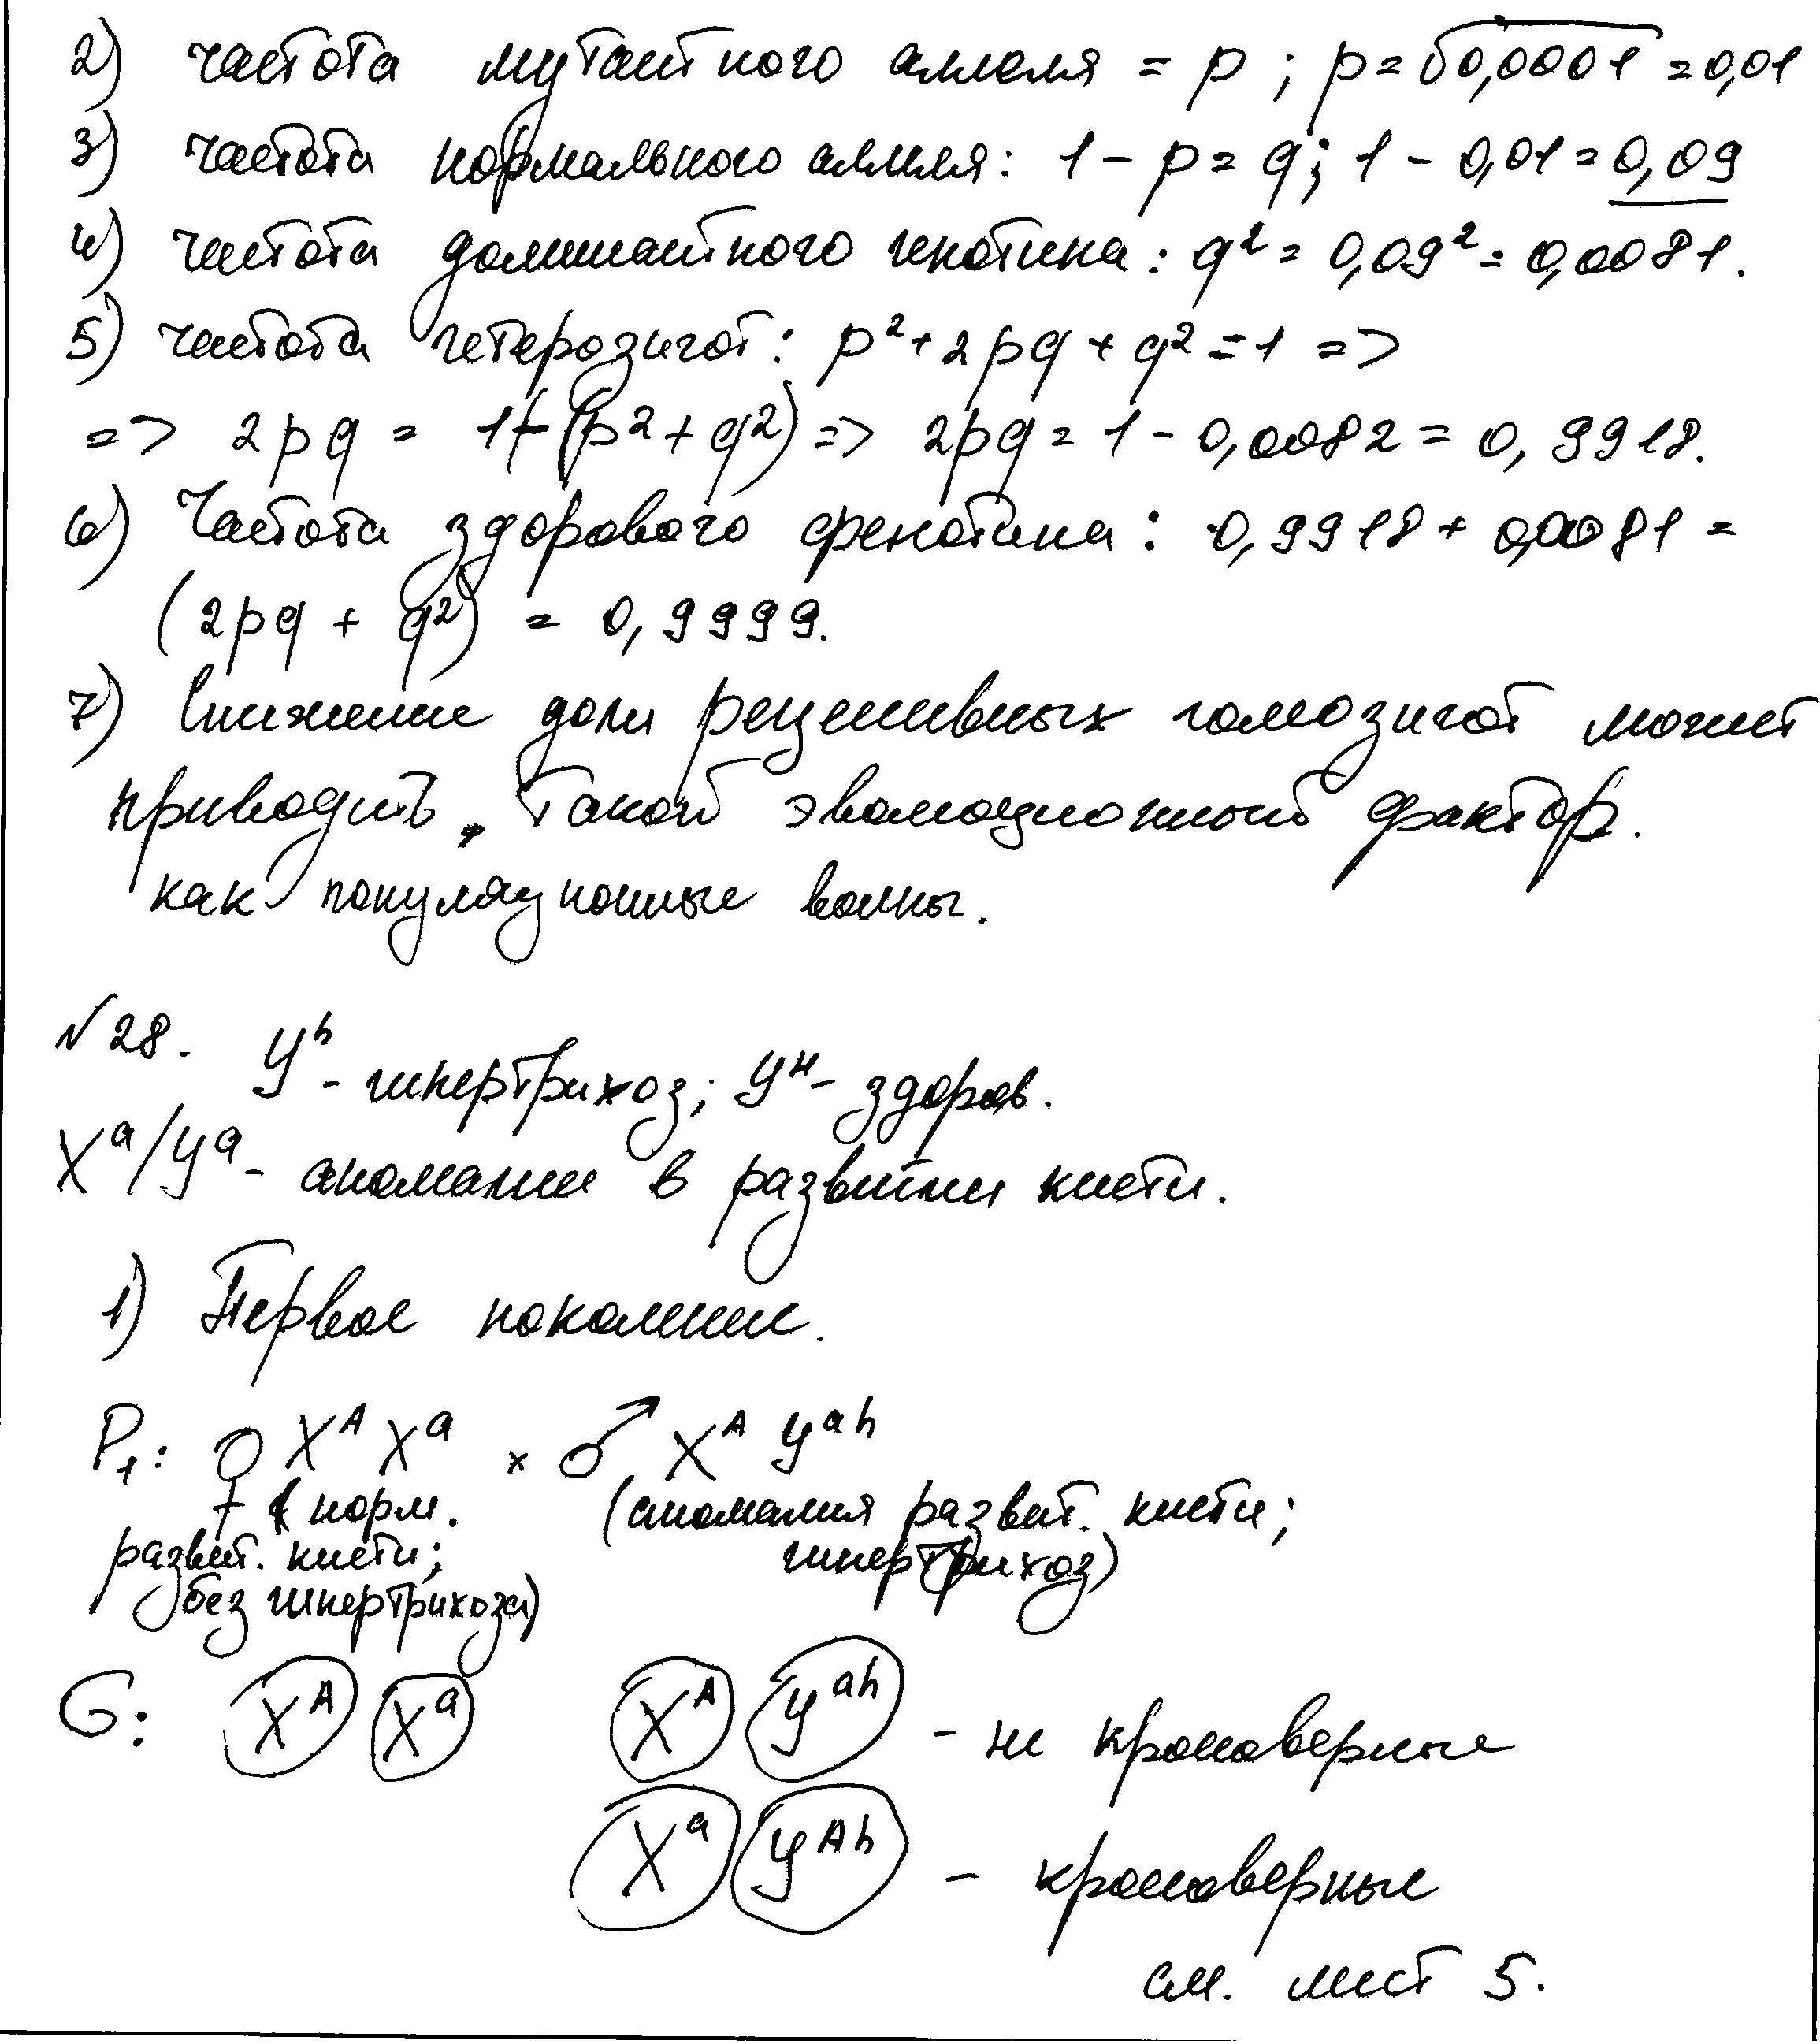 2) частота мутантного аллеля = p ; p = √0,0001 = 0,01
3) частота нормального аллеля: 1 - p = q; 1 - 0,01 = 0,09
4) частота доминантного генотипа: q² = 0,09² = 0,0081.
5) частота гетерозигот: p² + 2pq + q² = 1 =>
=> 2pq = 1 - (p² + q²) => 2pq = 1 - 0,0082 = 0,9918.
6) Частота здорового фенотипа: 0,9918 + 0,0081 =
(2pq + q²) = 0,9999.
7) Снижение доли рецессивных гомозигот может
приводить такой эволюционный фактор.
как популяционные волны.
№28. Yʰ - гипертрихоз; Yᴴ - здоров.
Xᵃ/Yᵃ - аномалии в развитии кисти.
1) Первое поколение.
P₁: ♀ Xᴬ Xᵃ × ♂ Xᴬ Yᵃʰ
( норм. (аномалия развит. кисти;
развит. кисти; гипертрихоз)
без гипертрихоза)
G: Xᴬ Xᵃ Xᴬ Yᵃʰ - не кроссоверные
Xᵃ Yᴬʰ - кроссоверные
см. лист 5.